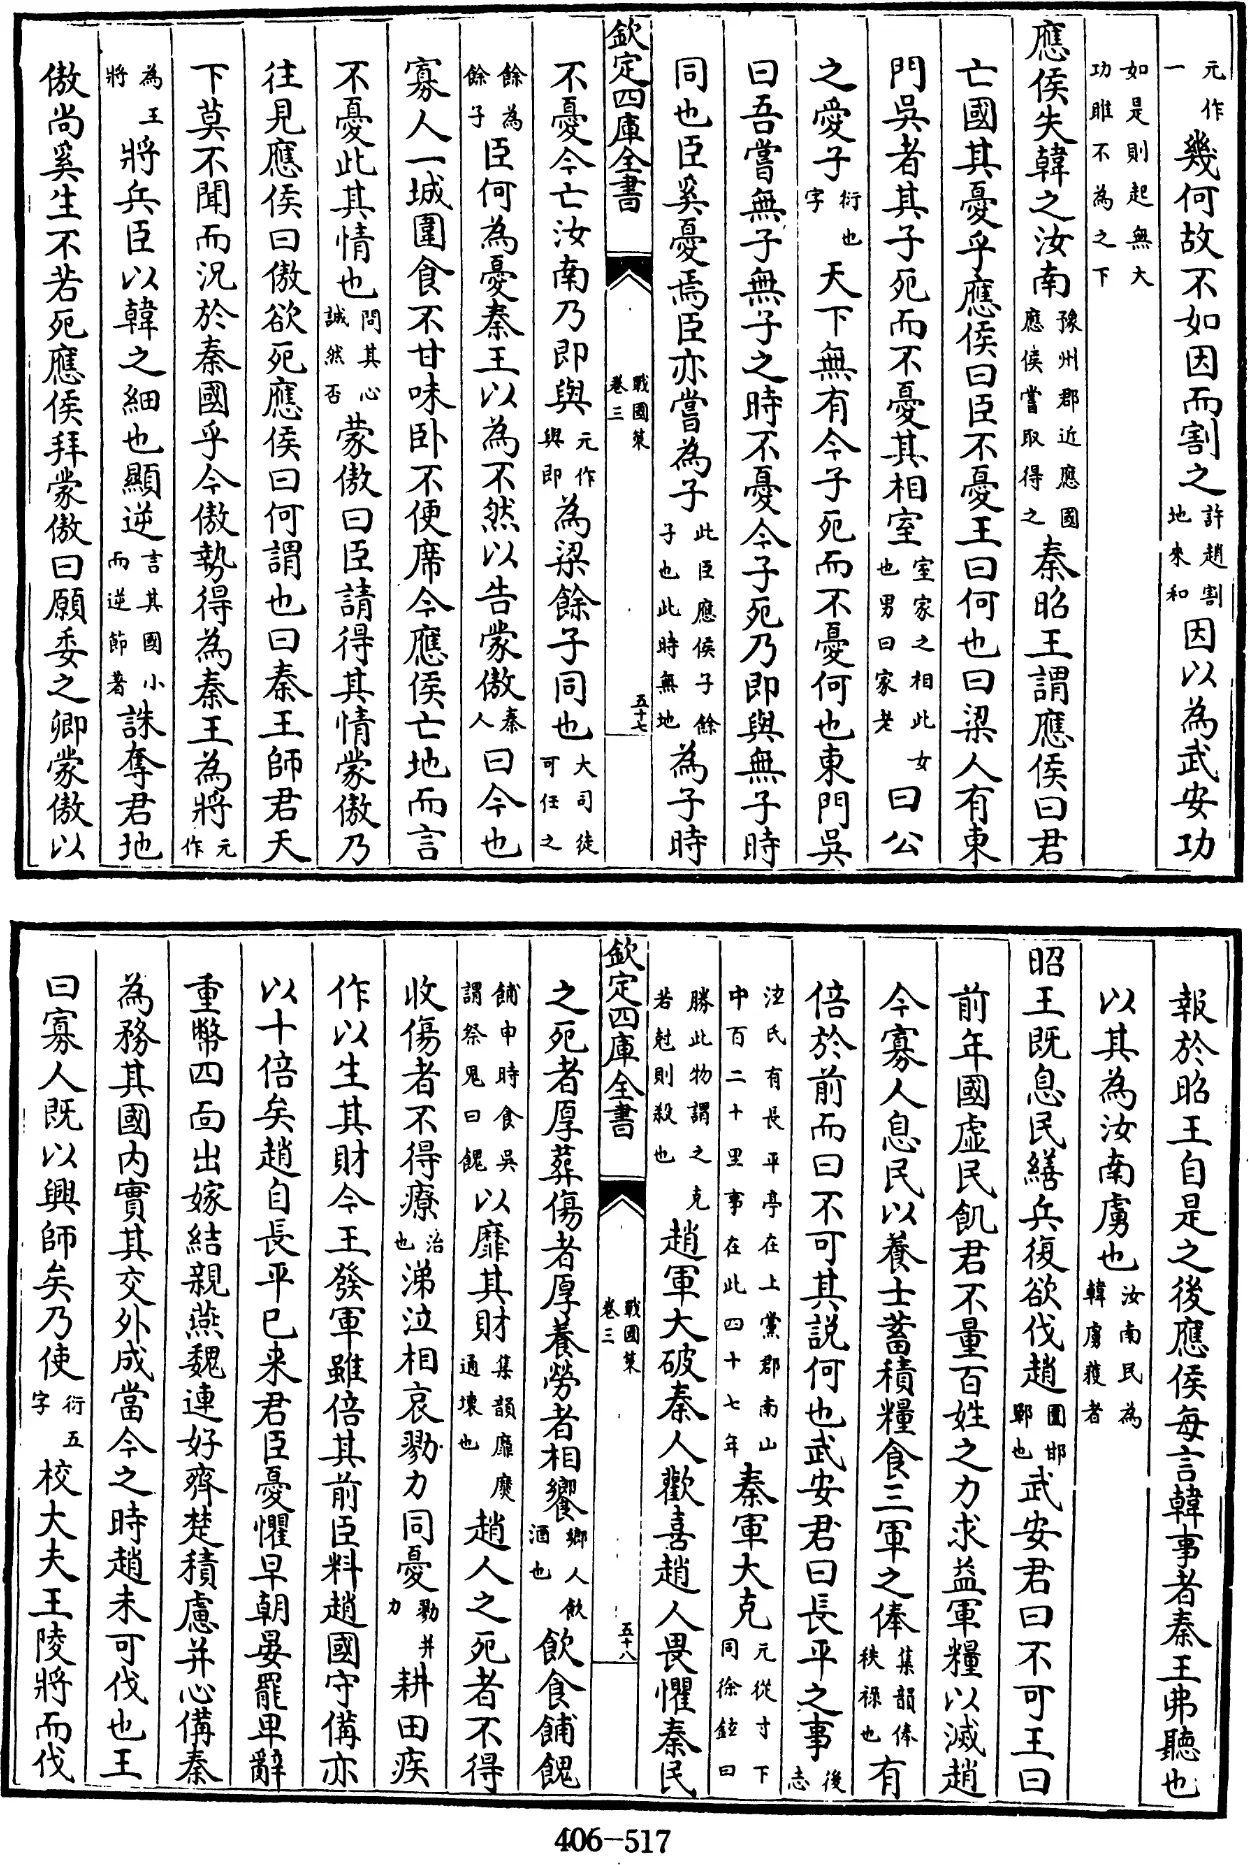 元作一幾何故不如因而割之許趙割地來和因以為武安功
如是則起無大功雎不為之下
應侯失韓之汝南豫州郡近應國應侯嘗取得之秦昭王謂應侯曰君
亡國其憂乎應侯曰臣不憂王曰何也曰梁人有東
門吳者其子死而不憂其相室室家之相此女也男曰家老曰公
之愛子衍也字天下無有今子死而不憂何也東門吳
曰吾嘗無子無子之時不憂今子死乃即與無子時
同也臣奚憂焉臣亦嘗為子此臣應侯子餘子也此時無地為子時
欽定四庫全書
戰國策
卷三
五十七
不憂今亡汝南乃即與元作與即為梁餘子同也大司徒可任之
餘為餘子臣何為憂秦王以為不然以告蒙傲秦人曰今也
寡人一城圍食不甘味卧不便席今應侯亡地而言
不憂此其情也問其心誠然否蒙傲曰臣請得其情蒙傲乃
往見應侯曰傲欲死應侯曰何謂也曰秦王師君天
下莫不聞而況於秦國乎今傲勢得為秦王為將元作
為王將將兵臣以韓之細也顯逆言其國小而逆節著誅奪君地
傲尚奚生不若死應侯拜蒙傲曰願委之卿蒙傲以
報於昭王自是之後應侯每言韓事者秦王弗聽也
以其為汝南虜也汝南民為韓虜獲者
昭王既息民繕兵復欲伐趙圍邯鄲也武安君曰不可王曰
前年國虛民飢君不量百姓之力求益軍糧以滅趙
今寡人息民以養士蓄積糧食三軍之俸集韻俸秩祿也有
倍於前而曰不可其說何也武安君曰長平之事後志
泫氏有長平亭在上黨郡南山中百二十里事在此四十七年秦軍大克元從寸下同徐鉉曰
勝此物謂之克若尅則殺也趙軍大破秦人歡喜趙人畏懼秦民
欽定四庫全書
戰國策
卷三
五十八
之死者厚葬傷者厚養勞者相饗鄉人飲酒也飲食餔餽
餔申時食吳謂祭鬼曰餽以靡其財集韻靡糜通壞也趙人之死者不得
收傷者不得療治也涕泣相哀勠力同憂勠并力耕田疾
作以生其財今王發軍雖倍其前臣料趙國守備亦
以十倍矣趙自長平已來君臣憂懼早朝晏罷卑辭
重幣四面出嫁結親燕魏連好齊楚積慮并心備秦
為務其國內實其交外成當今之時趙未可伐也王
曰寡人既以興師矣乃使衍五字校大夫王陵將而伐
406-517